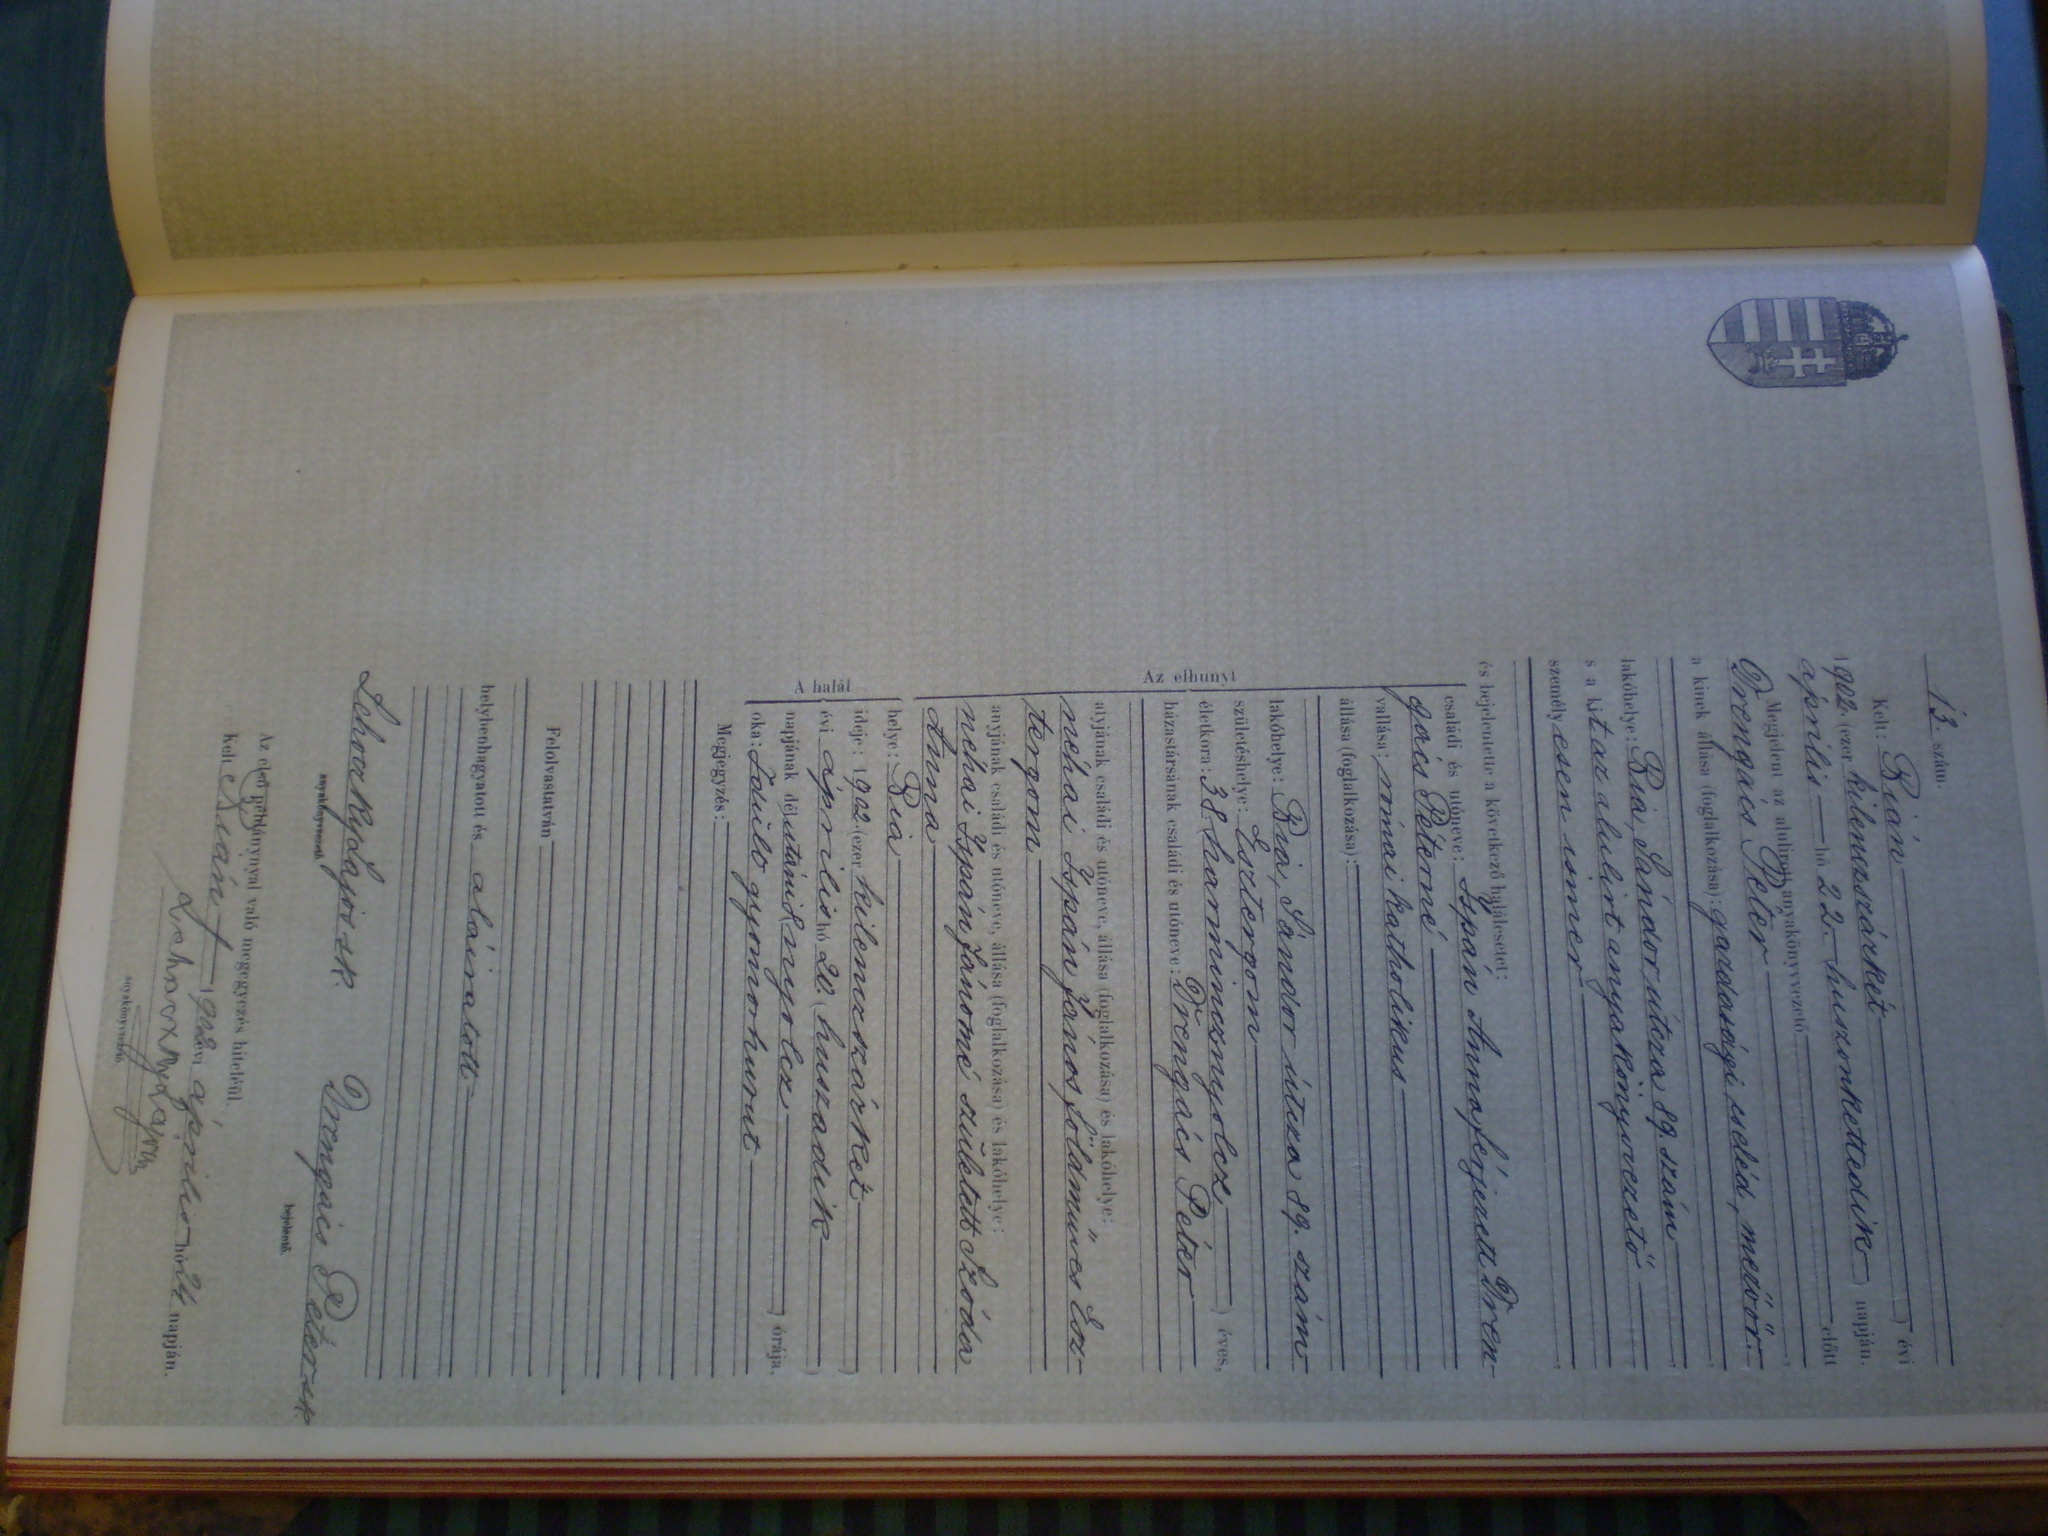 13. szám.
Kelt: Bián ) évi
1902. (ezer kilenczszázkét
április hó 22. huszonkettedik ) napján.
Megjelent az alulirott anyakönyvvezető előtt
Drengács Péter
a kinek állása (foglalkozása): gazdasági cseléd, mezőőr.
lakóhelye: Bia, Sándor útcza 89. szám
s a kit az alulirt anyakönyvvezető
személyesen ismer
és bejelentette a következő halálesetet:
Az elhunyt
családi és utóneve: Ispán Anna férjezett Dren-
gács Péterné
vallása: római katholikus
állása (foglalkozása):
lakóhelye: Bia, Sándor útcza 89. szám
születéshelye: Esztergom
életkora: 38 (harmincznyolcz ) éves,
házastársának családi és utóneve: Drengács Péter
atyjának családi és utóneve, állása (foglalkozása) és lakóhelye:
néhai Ispán János földmüves Esz-
tergom
anyjának családi és utóneve, állása (foglalkozása) és lakóhelye:
néhai Ispán Jánosné született Szóda
Anna
A halál
helye: Bia
ideje: 1902. (ezer kilenczszázkét )
évi április hó 20. ( huszadik )
napjának délutáni 8 nyolcz ) órája.
oka: Idült gyomorhurut
Megjegyzés:
Felolvastatván
helybenhagyatott és aláiratott
Lehoczky Lajos sk. Drengács Péter sk.
anyakönyvvezető. bejelentő.
Az első példánynyal való megegyezés hiteléül.
Kelt Bián 1902 évi április hó 24 napján.
Lehoczky Lajos
anyakönyvvezető.